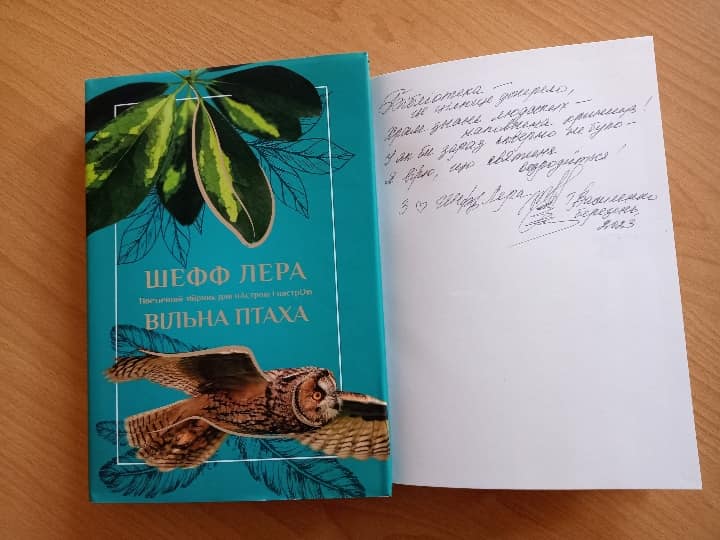 ШЕФФ ЛЕРА
Поетичний збірник для нАстрою і пострОїв
ВІЛЬНА ПТАХА
Бібліотека –
це чільне джерело,
храм знань людських –
наповнена криниця!
І як би зараз скверно не було –
я вірю, що святиня
відродиться!
З ♡ Шефф Лера
/Василенко
березень,
2023